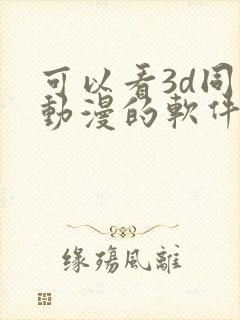 可以看3d同
動漫的軟件
缘殇風離